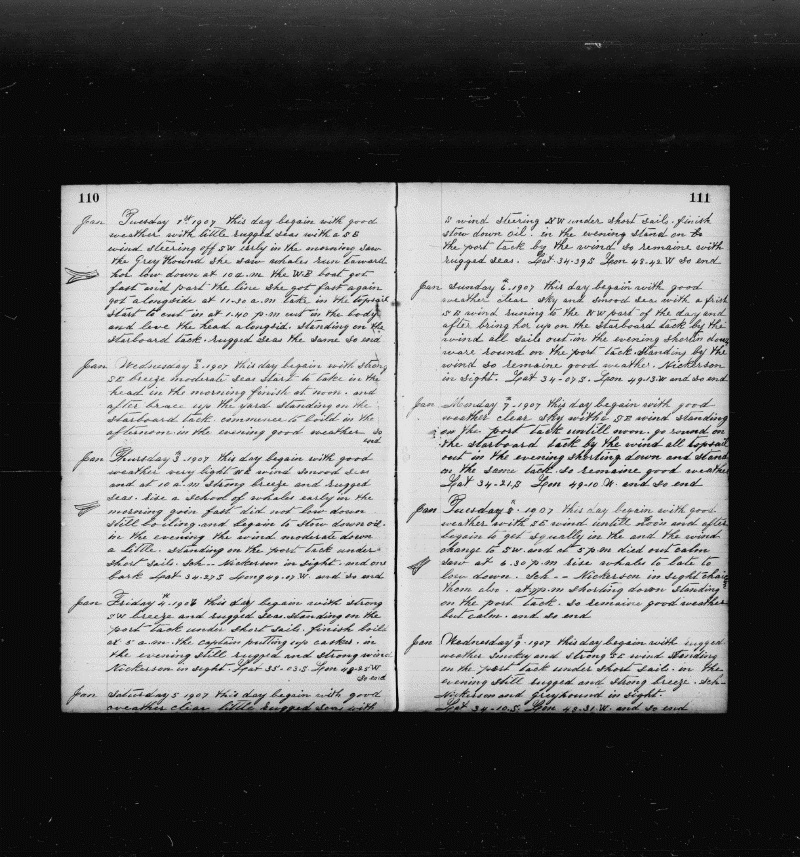 110
Jan Tuesday 1st 1907 this day begain with good
weather with little rugged seas with a SE
wind steering off SW erly in the morning saw
the Grey Hound she saw whales run toward
her low down at 10 a.m the WB boat got
fast and part the line she got fast again
got alongside at 11-30 a.m take in the topsail
start to cut in at 1.40 p.m cut in the body
and leve the head alongsid. standing on the
starboard tack. rugged seas the same so end
Jan Wednesday 2 1907 this day begain with strong
SE breeze moderate seas start to take in the
head in the morning finish at noon. and
after brace up the yard standing on the
starboard tack. commence to boild in the
afternoon. in the evening good weather so
end
Jan Thursday 3. 1907 this day begain with good
weather very light wind smood seas
and at 10 a.m strong breeze and rugged
seas. rise a school of whales early in the
morning goin fast did not low down
still boiling and begain to stow down oil.
in the evening the wind moderate down
a little. standing on the port tack under
short sails. Sch -- Nickerson in sight. and one
bark Lat 34-27S Long 49.07 W. and so end
Jan Friday 4. 1907 this day begain with strong
SW breeze and rugged seas. standing on the
port tack under short sails. finish boild
at 5 a.m. the copter putting up caskes. in
the evening still rugged and strong wind
Nickerson in sight. Lat 35-03S Lon 48-25W
so end
Jan Saturday 5 1907 this day begain with good
weather clear little rugged seas with
111
S wind steering NW under short sails. finish
stow down oil. in the evening stand on the
the port tack by the wind so remaine with
rugged seas. Lat 34-39S Lon 48-42 W so end
Jan Sunday 6. 1907 this day begain with good
weather clear sky and smood sea with a frish
SE wind runing to the NW part of the day and
after bring her up on the starboard tack by the
wind all sails out. in the evening shorten down
ware round on the port tack. standing by the
wind so remaine good weather. Nickerson
in sight. Lat 34-07S. Lon 49-13W and so end
Jan Monday 7. 1907 this day begain with good
weather clear sky withe SE wind standing
on the port tack untill noon. go round on
the starboard tack by the wind all topsail
out in the evening shorting down and stand
on the same tack. so remaine good weather
Lat 34-21,S Lon 49-10 W. and so end
Jan Tuesday 8. 1907 this day begain with good
weather with SE wind untill noon and after
begain to get squally in the and the wind
change to SW and at 5 p.m died out calm
saw at 6.30 p.m rise whales to late to
low down. Sch -- Nickerson in sight chaise
them also. at 7 p.m shorting down standing
on the port tack. so remaine good weather
but calm. and so end
Jan Wednesday 9. 1907 this day begain with rugged
weather smoky and strong SE wind standing
on the port tack under short sails. in the
evening still rugged and strong breeze. Sch-
Nickerson and Greyhound in sight.
Lat 34-10.S. Lon 48-31.W. and so end